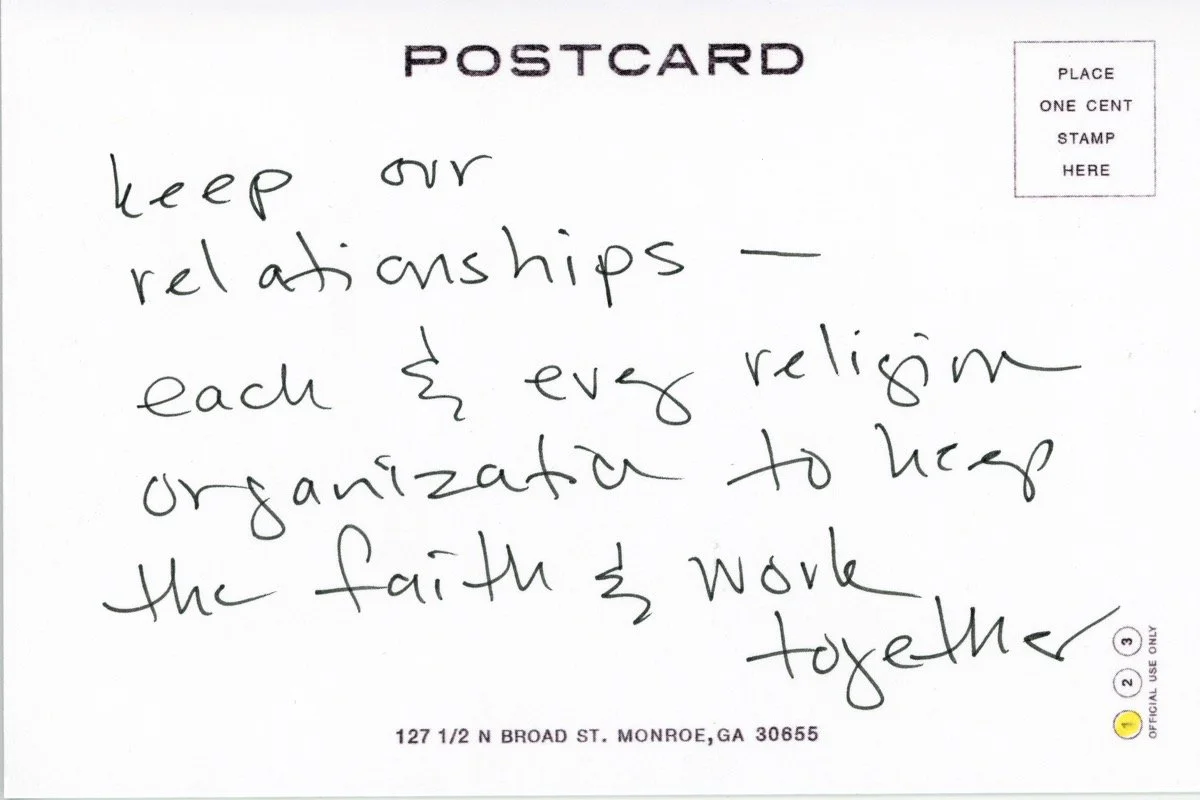 POSTCARD
PLACE
ONE CENT
STAMP
HERE
keep our
relationships —
each & every religion
organization to keep
the faith & work
together
127 1/2 N BROAD ST. MONROE, GA 30655
1 2 3
OFFICIAL USE ONLY